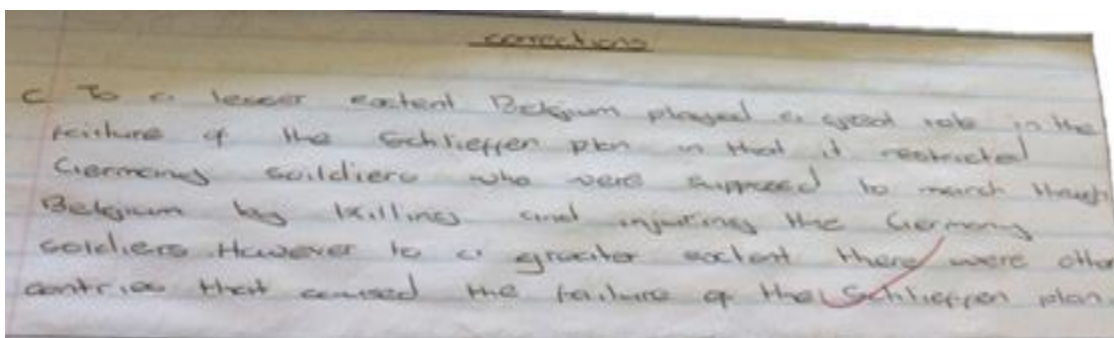 corrections
c To a lesser extent Belgium played a great role in the
failure of the Schlieffen plan in that it restricted
Germany soildiers who were supposed to march though
Belgium by killing and injuring the Germany
soldiers. However to a greater extent there were other
contries that caused the failure of the Schlieffen plan